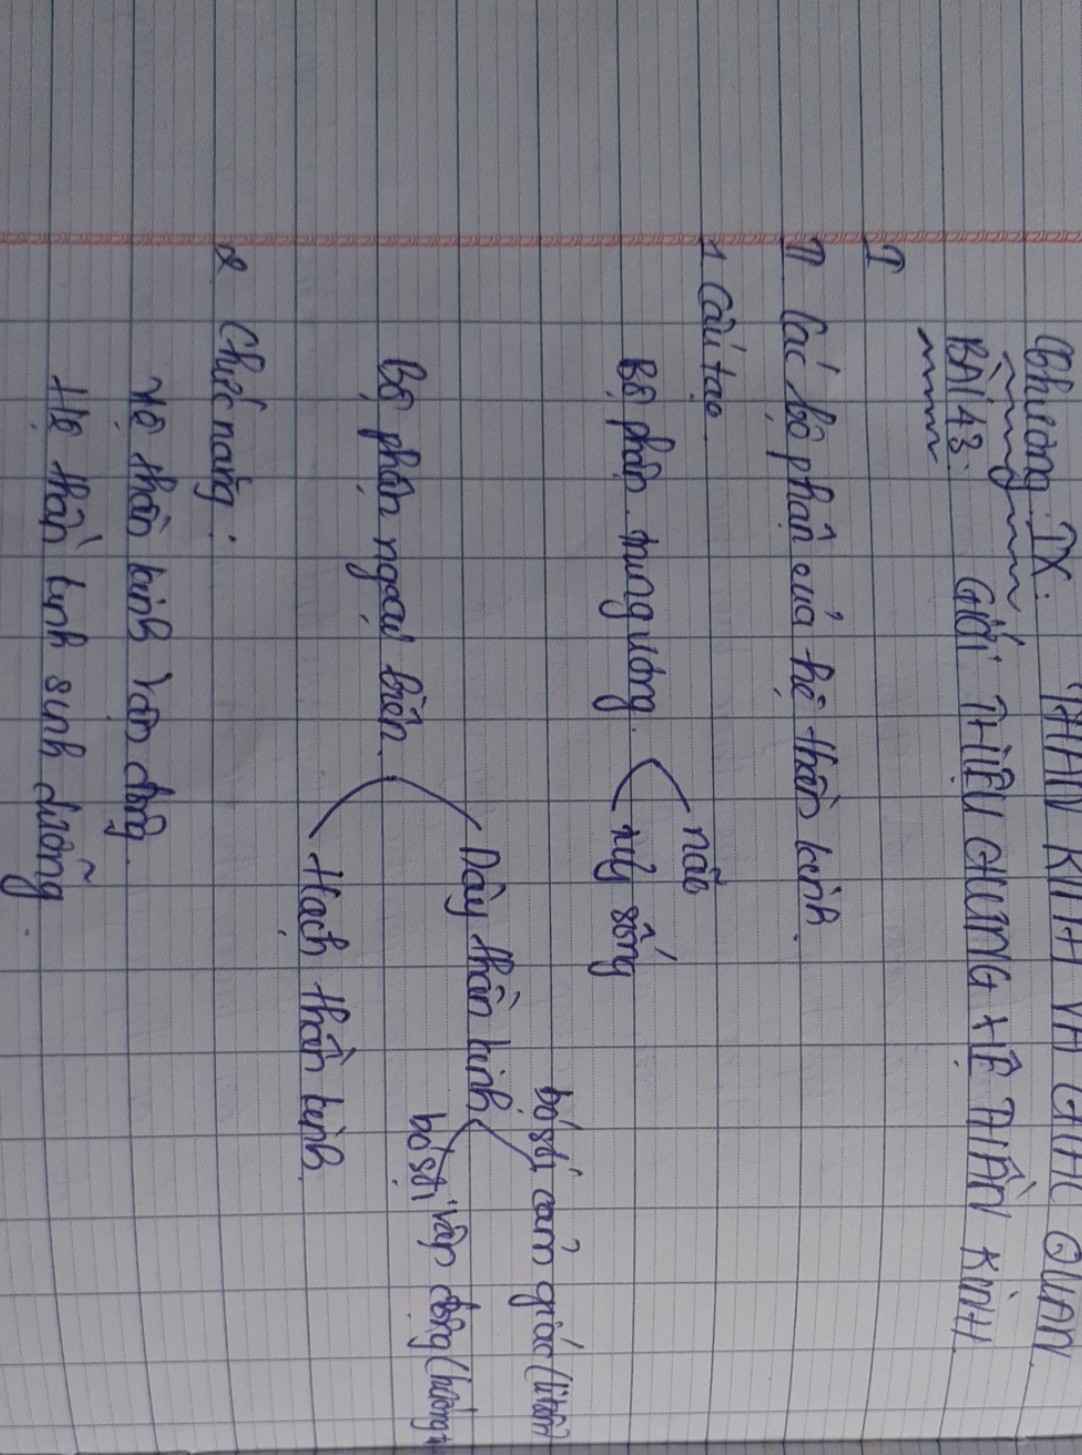 Chương IX. THẦN KINH VÀ GIÁC QUAN
BÀI 43. GIỚI THIỆU CHUNG HỆ THẦN KINH
I
II Các bộ phận của hệ thần kinh.
1 Cấu tạo
não
Bộ phận trung ương.
tủy sống
bó sợi cảm giác (li tâm)
Dây thần kinh
bó sợi vận động (hướng
Bộ phận ngoại biên.
Hạch thần kinh.
2 Chức năng:
Hệ thần kinh vận động.
Hệ thần kinh sinh dưỡng.